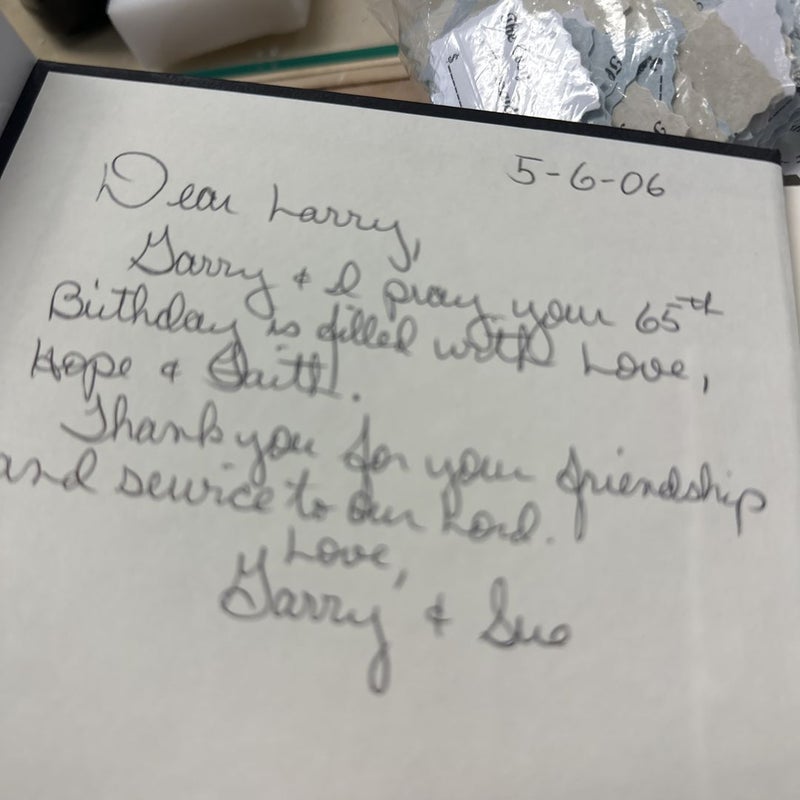 5-6-06
Dear Larry,
Garry & I pray your 65th
Birthday is filled with Love,
Hope & Faith.
Thank you for your friendship
and service to our Lord.
Love,
Garry & Sue